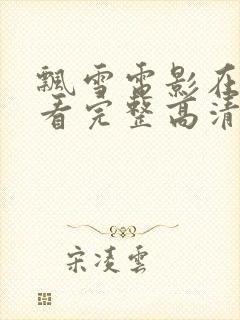 飘雪雷影在
看完整高清
宋凌雲